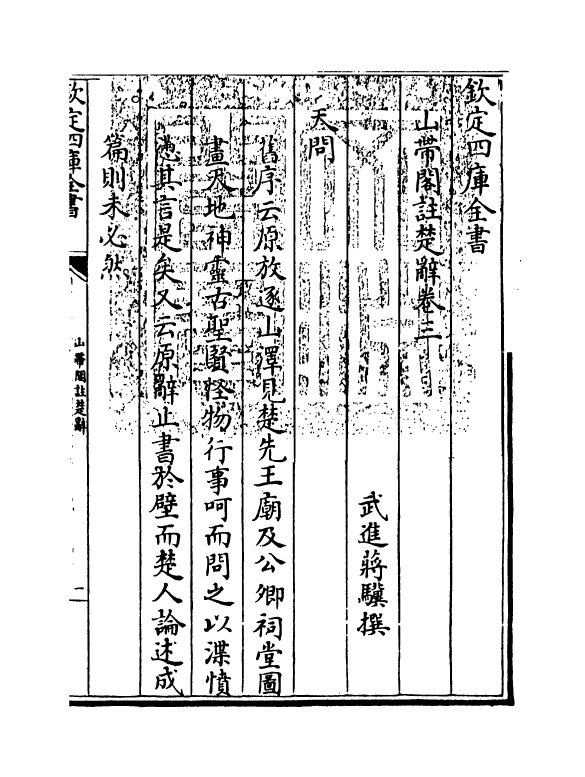 欽定四庫全書
山帶閣註楚辭卷三
武進蔣驥撰
天問
舊序云原放逐山澤見楚先王廟及公卿祠堂圖
畫天地神靈古聖賢怪物行事呵而問之以渫憤
懣其言是矣又云原辭止書於壁而楚人論述成
篇則未必然
欽定四庫全書
山帶閣註楚辭